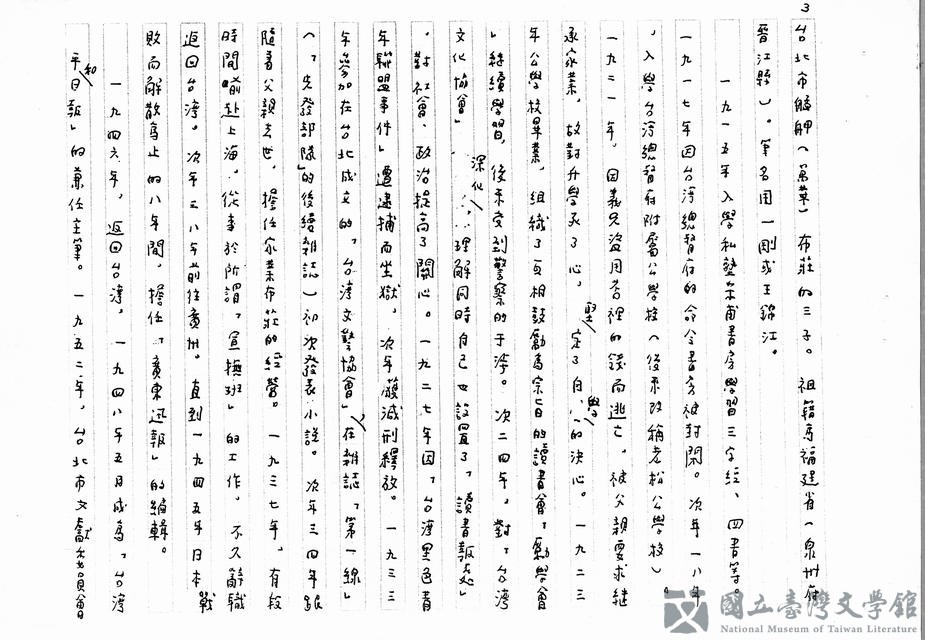 3
台北市艋舺(萬華)布莊的三子。祖籍為福建省(泉州府
晋江縣)。筆名用一剛或王錦江。
一九一五年入學私塾茉甫書房學習三字經、四書等。
一九一七年因台湾總督府的命令書房被封閉。次年一八年
,入學台湾總督府附屬公學校(後來改稱老松公學校)。
一九二一年。因義兄盜用店裡的錢而逃亡,被父親要求継
承家業,故對升學死了心,堅定了自學的決心。一九二三
年公學校畢業,組織了互相鼓勵為宗旨的讀書會「勵學會
」継續學習,後來受到警察的干涉。次二四年,對「台湾
文化協會」深化理解同時自己也設置了「讀書報处」
,對社會、政治提高了關心。一九二七年因「台灣黑色青
年聯盟事件」遭逮捕而坐獄,次年獲減刑釋放。一九三三
年參加在台北成立的「台湾文藝協會」,在雜誌「第一線」
(「先發部隊」的後續雜誌)初次發表小説。次年三四年跟
隨着父親去世,擔任家業布莊的経營。一九三七年,有段
時間前赴上海,從事於所謂「宣撫班」的工作。不久辭職
返回台湾。次年三八年前往廣州。直到一九四五年日本戰
敗而解散為止的八年間,擔任「廣東迅報」的編輯。
一九四六年,返回台湾,一九四八年五月成為「台湾
和平日報」的兼任主筆。一九五二年,台北市文獻委員會
國立臺灣文學館
National Museum of Taiwan Literature